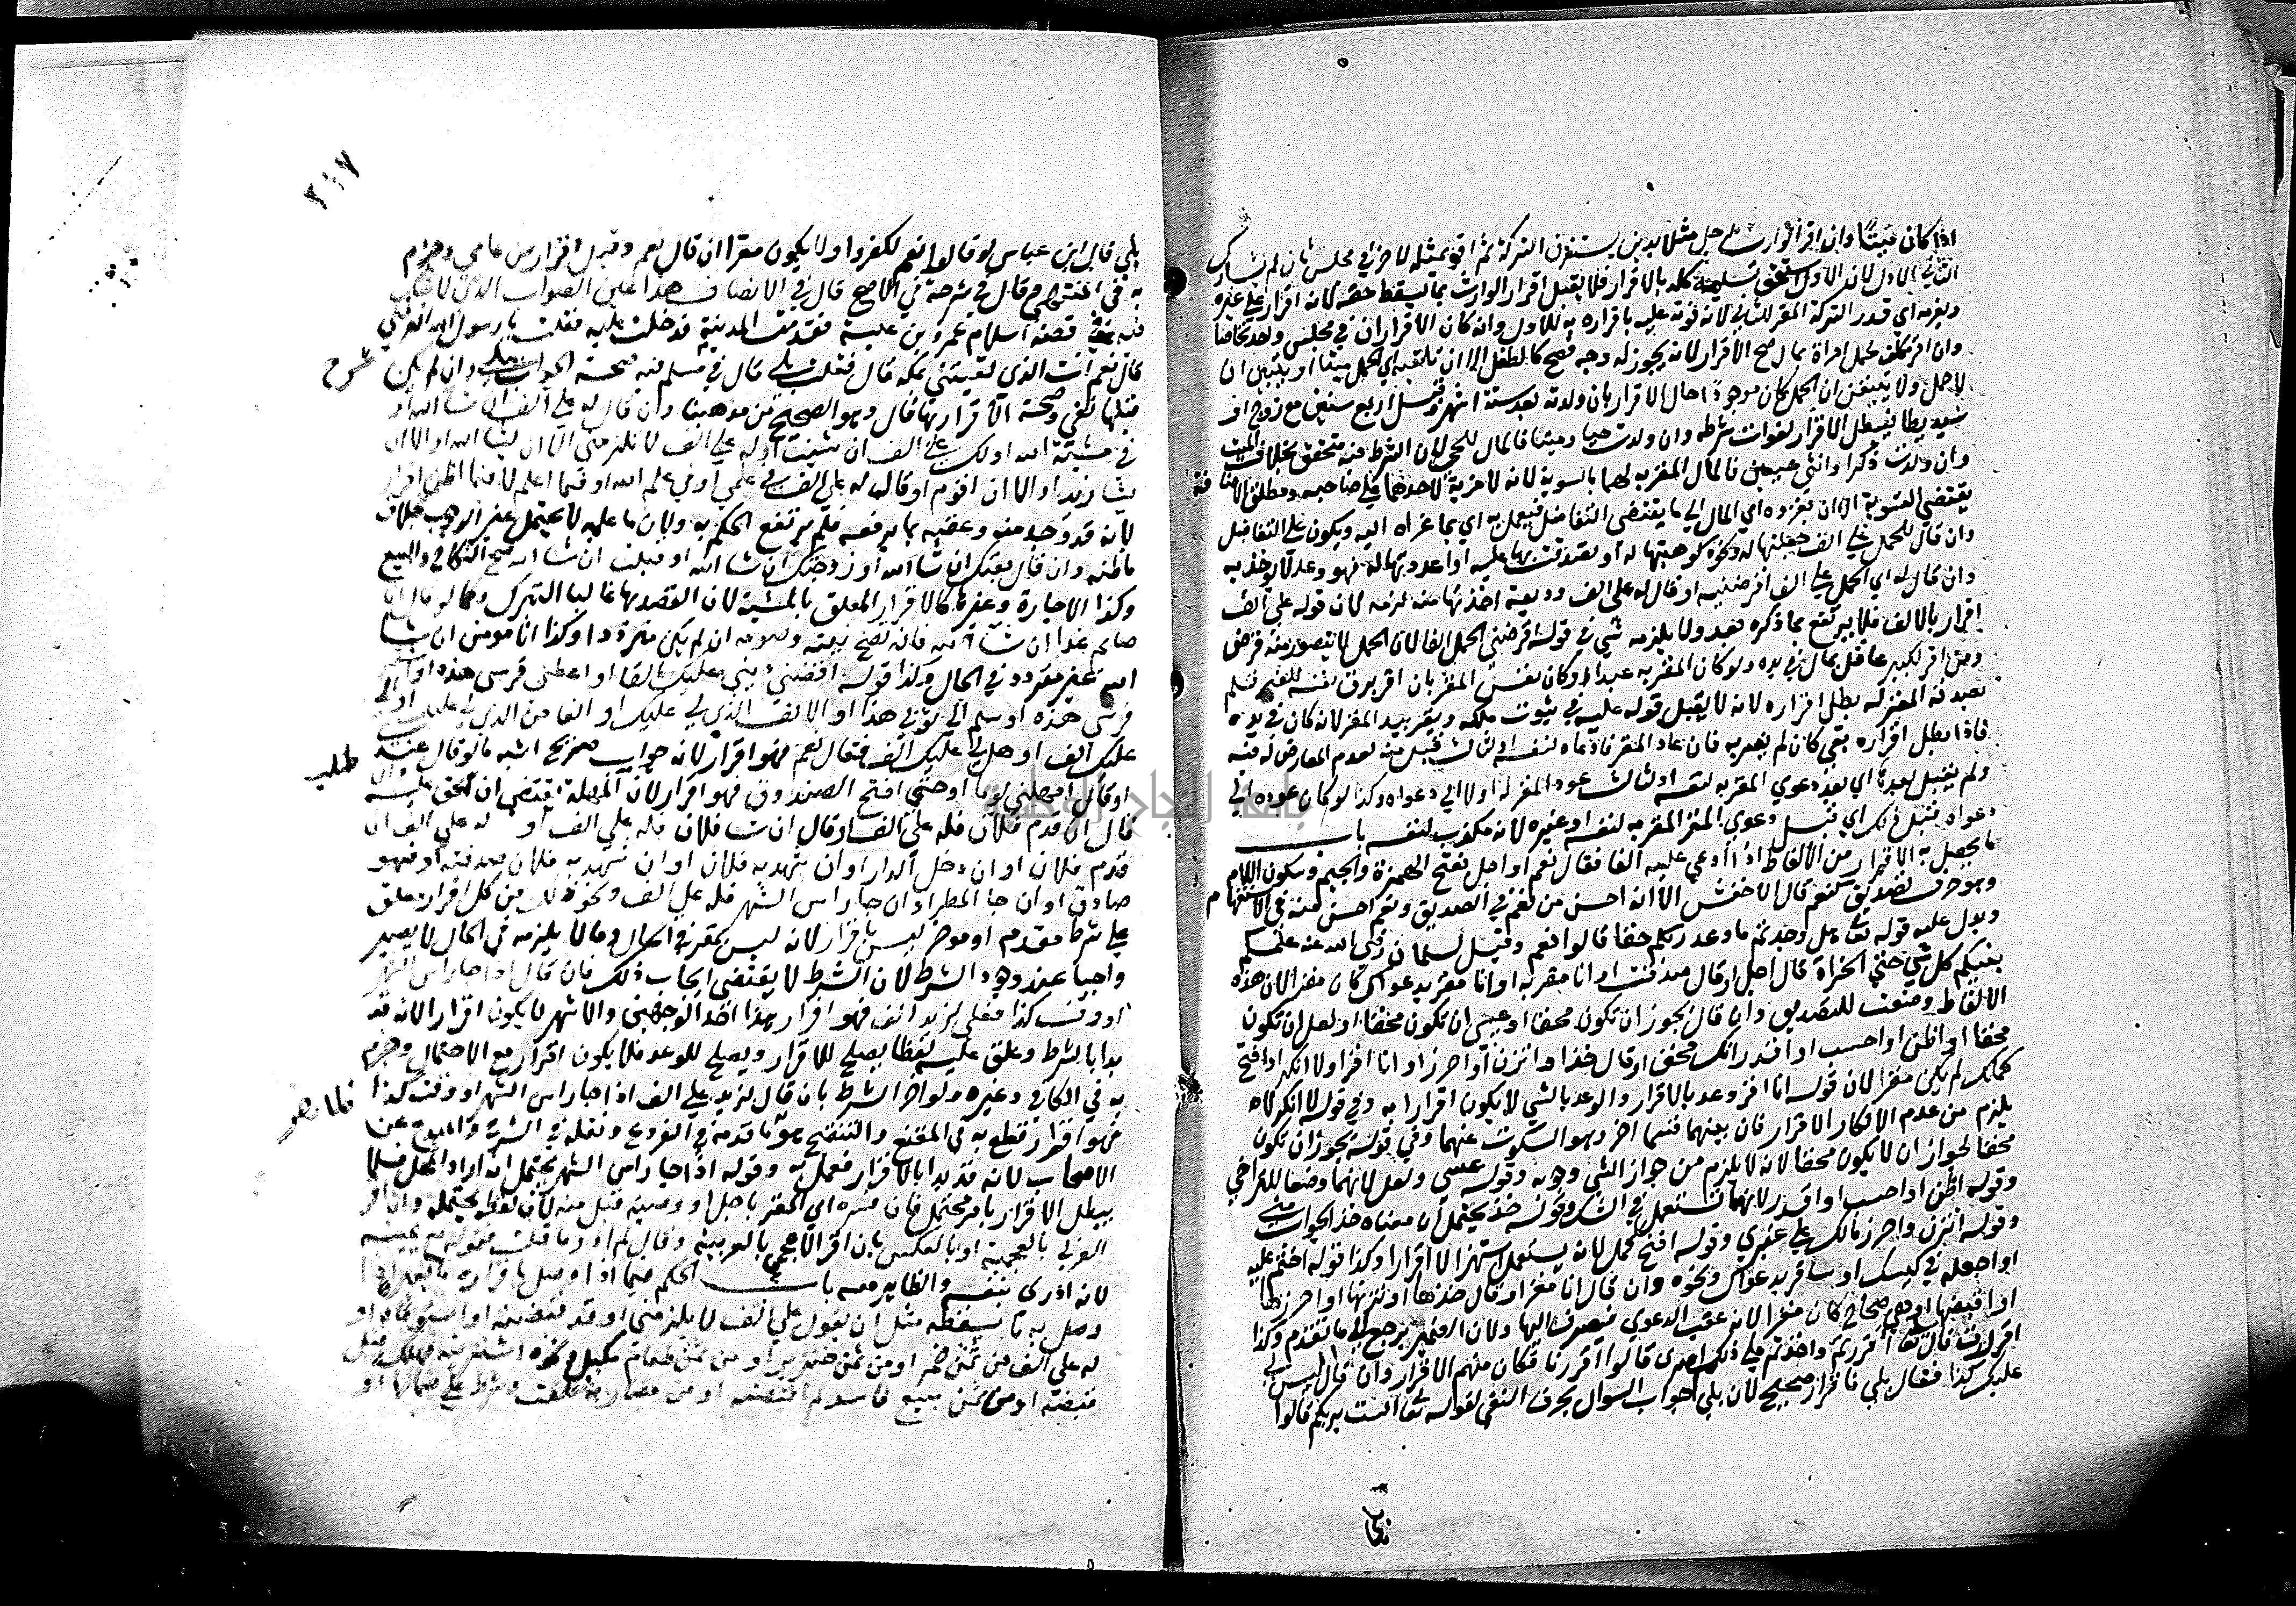 اذا كان ميتا وان اقر الوارث لرجل مثلا بدين يستغرق التركة ثم اقر بمثله لاخر في مجلس ثان لم يشارك
الثاني الاول لان الاول استحق تسليمه كله بالاقرار فلا يقبل اقرار الوارث بما يسقط حقه لانه اقرار علي غيره
ويغرمه اي قدر التركة المقر للثاني لانه فوته عليه باقراره به للاول وان كان الاقراران في مجلس واحد تحاصا
وان اقر مكلف لحمل امراة بمال صح الاقرار لانه يجوز له وجه فصح كالطفل الا ان تلقيه اي الحمل ميتا او يتبين ان
لا حمل ولا يتيقن ان الحمل كان موجودا حال الاقرار بان ولدته بعد ستة اشهر وقبل اربع سنين مع زوج او
سيد يطا فيبطل الاقرار لفوات شرطه وان ولدت حيا وميتا فالمال للحي لان الشرط فيه متحقق بخلاف الميت
وان ولدت ذكرا وانثى حيين فالمال المقر به لهما بالسوية لانه لا مزية لاحدهما علي صاحبه ومطلق الاضافة
يقتضي التسوية الا ان يعزوه اي المال الي ما يقتضي التفاضل فيعمل به اي بما عزاه اليه ويكون علي التفاضل
وان قال للحمل علي الف جعلتها له ونحوه كوهبتها له او تصدقت بها عليه او اعددتها له فهو وعد لا يوخذ به
وان قال له اي الحمل علي الف اقرضنيه او قال له علي الف وديعة اخذتها منه لزمه لان قوله علي الف
اقرار بالالف فلا يرتفع بما ذكره بعد ولا يلزمه شي في قوله اقرضني الحمل الفا لان الحمل لا يتصور منه قرض
ومن اقر لكبير عاقل بمال في يده ولو كان المقر به عبدا او كان نفس المقر بان اقر برق نفسه للغير فلم
يصدقه المقر له بطل اقراره لانه لا يقبل قوله عليه في ثبوت ملكه ويقر بيد المقر لانه كان في يده
فاذا بطل اقراره بقي كان لم يقر به فان عاد المقر فادعاه لنفسه او لثالث قبل منه لعدم المعارض له فيه
ولم يقبل بعدها اي بعد دعوي المقر به لنفسه او لثالث عود المقر له اولا الي دعواه وكذا لو كان عوده الي
دعواه قبل ذلك اي قبل دعوي المقر المقر به لنفسه او غيره لانه مكذب لنفسه باب
ما يحصل به الاقرار من الالفاظ اذا ادعي عليه الفا فقال نعم او اجل بفتح الهمزة والجيم وسكون اللام
وهو حرف تصديق كنعم قال الاخفش الا انه احسن من نعم في التصديق ونعم احسن منه في الاستفهام
ويدل عليه قوله تعالي هل وجدتم ما وعد ربكم حقا قالوا نعم وقيل لسلمان رضي الله عنه علمكم
نبيكم كل شي حتي الخراة قال اجل او قال صدقت او انا مقر به او انا مقر بدعواك كان مقرا لان هذه
الالفاظ وضعت للتصديق وان قال يجوز ان تكون محقا او عسى ان تكون محقا او لعل ان تكون
محقا او اظن او احسب او اقدر انك محق او قال خذ او اتزن او احرز او انا اقر او لا انكر او افتح
كمك لم يكن مقرا لان قوله انا اقر وعد بالاقرار والوعد بالشي لا يكون اقرارا به وفي قوله لا انكر لا
يلزم من عدم الانكار الاقرار فان بينهما قسما اخر وهو السكوت عنهما وفي قوله يجوز ان تكون
محقا لجواز ان لا يكون محقا لانه لا يلزم من جواز الشي وجوبه وقوله عسى ولعل لانهما وضعا للتراخي
وقوله اظن او احسب او اقدر لانها تستعمل في الشك وقوله خذ يحتمل ان معناه خذ الجواب مني
وقوله اتزن واحرز مالك علي غيري وقوله افتح كمك لانه يستعمل استهزا لا اقرارا وكذا قوله اختم عليه
او اجعله في كيسك او سافر بدعواك ونحوه وان قال انا مقر او قال خذها او اتزنها او احرزها
او اقبضها او هي صحاح كان مقرا لانه عقب الدعوي فيصرف اليها ولان الضمير يرجع الي ما تقدم وكذا
اقررت قال تعالي ااقررتم واخذتم علي ذلكم اصري قالوا اقررنا فكان منهم الاقرار وان قال اليس لي
عليك كذا فقال بلي فاقرار صحيح لان بلي جواب السوال بحرف النفي لقوله تعالي الست بربكم قالوا
بلي قال ابن عباس لو قالوا نعم لكفروا ولا يكون مقرا ان قال نعم وقيل اقرار من عامي وجزم
به في المنتهي وقال في شرحه في الاصح قال في الانصاف هذا عين الصواب الذي لا شك
فيه وفي قصة اسلام عمرو بن عبسة فقدمت المدينة فدخلت عليه فقلت يا رسول الله اتعرفني
قال نعم انت الذي لقيتني بمكة قال فقلت بلي قال في شرح مسلم فيه صحة الجواب ببلي وان لم يكن
قبلها نفي وصحة الاقرار بها قال وهو الصحيح من مذهبنا وان قال له علي الف ان شا الله او
في مشيئة الله او لك علي الف ان شئت او له علي الف لا تلزمني الا ان يشا الله او الا ان
يشا زيد او الا ان اقوم او قال له علي الف في علمي او في علم الله او فيما اعلم لا فيما اظن اقرار
لانه قد وجد منه وعقبه بما يرفعه فلم يرتفع الحكم به ولان ما علمه لا يحتمل غير الوجوب بخلاف
ما ظنه وان قال بعتك ان شا الله او زوجتك ان شا الله او قبلت ان شا الله صح النكاح والبيع
وكذا الاجارة وغيرها كالاقرار المعلق بالمشيئة لان القصد بها غالبا التبرك وكما لو قال انا
صايم غدا ان شا الله فانه تصح نيته وصومه ان لم يكن مترددا وكذا انا مومن ان شا
الله غير متردد في الحال وكذا قوله اقضني ديني عليك الفا او اعطني فرسي هذه او اشتر
فرسي هذه او سلم الي ثوبي هذا او الالف الذي لي عليك او الفا من الذي لي عليك او لي
عليك الف او هل لي عليك الف فقال نعم فهو اقرار لانه جواب صريح اشبه ما لو قال عندي
او قال امهلني يوما او حتي افتح الصندوق فهو اقرار لان طلب المهلة يقتضي ان الحق عليه
قال ان قدم فلان فله علي الف او قال ان شا فلان فله علي الف او له علي الف ان
قدم فلان او ان دخل الدار او ان شهد به فلان او ان شهد به فلان صدقته او فهو
صادق او ان جا المطر او ان جا راس الشهر فله علي الف ونحو ذلك من كل اقرار معلق
علي شرط مقدم او موخر ليس باقرار لانه ليس بمقر في الحال وما لا يلزمه في الحال لا يصير
واجبا عند وجود الشرط لان الشرط لا يقتضي ايجاب ذلك فان قال اذا جا راس الشهر
او وقت كذا فعلي لزيد الف فهو اقرار هذا احد الوجهين والاشهر لا يكون اقرارا لانه قد
بدا بالشرط وعلق عليه لفظا يصلح للاقرار ويصلح للوعد فلا يكون اقرار مع الاحتمال وجزم
به في الكافي وغيره ولو اخر الشرط بان قال لزيد علي الف اذا جا راس الشهر او وقت كذا
فهو اقرار قطع به في المقنع والتنقيح وهو ما قدمه في الفروع ونقله في الشرح والمبدع عن
الاصحاب لانه قد بدا بالاقرار فعمل به وقوله اذا جا راس الشهر يحتمل انه اراد المحل فلا
يبطل الاقرار بامر محتمل فان فسره اي المقر باجل او وصية قبل منه لان لفظه يحتمله وان اقر
العربي بالعجمية او بالعكس بان اقر الاعجمي بالعربية وقال لم ادر ما قلت فقوله مع يمينه
لانه ادري بنفسه والظاهر معه باب الحكم فيما اذا وصل باقراره ما يغيره اذا
وصل به ما يسقطه مثل ان يقول علي الف لا يلزمني او قد قبضه او استوفاه او
له علي الف من ثمن خمر او من ثمن خنزير او من ثمن طعام مكيل ونحوه اشتريته فهلك قبل
قبضه او من ثمن مبيع فاسد لم اقبضه او من مضاربة تلفت وشرط علي ضمانها او